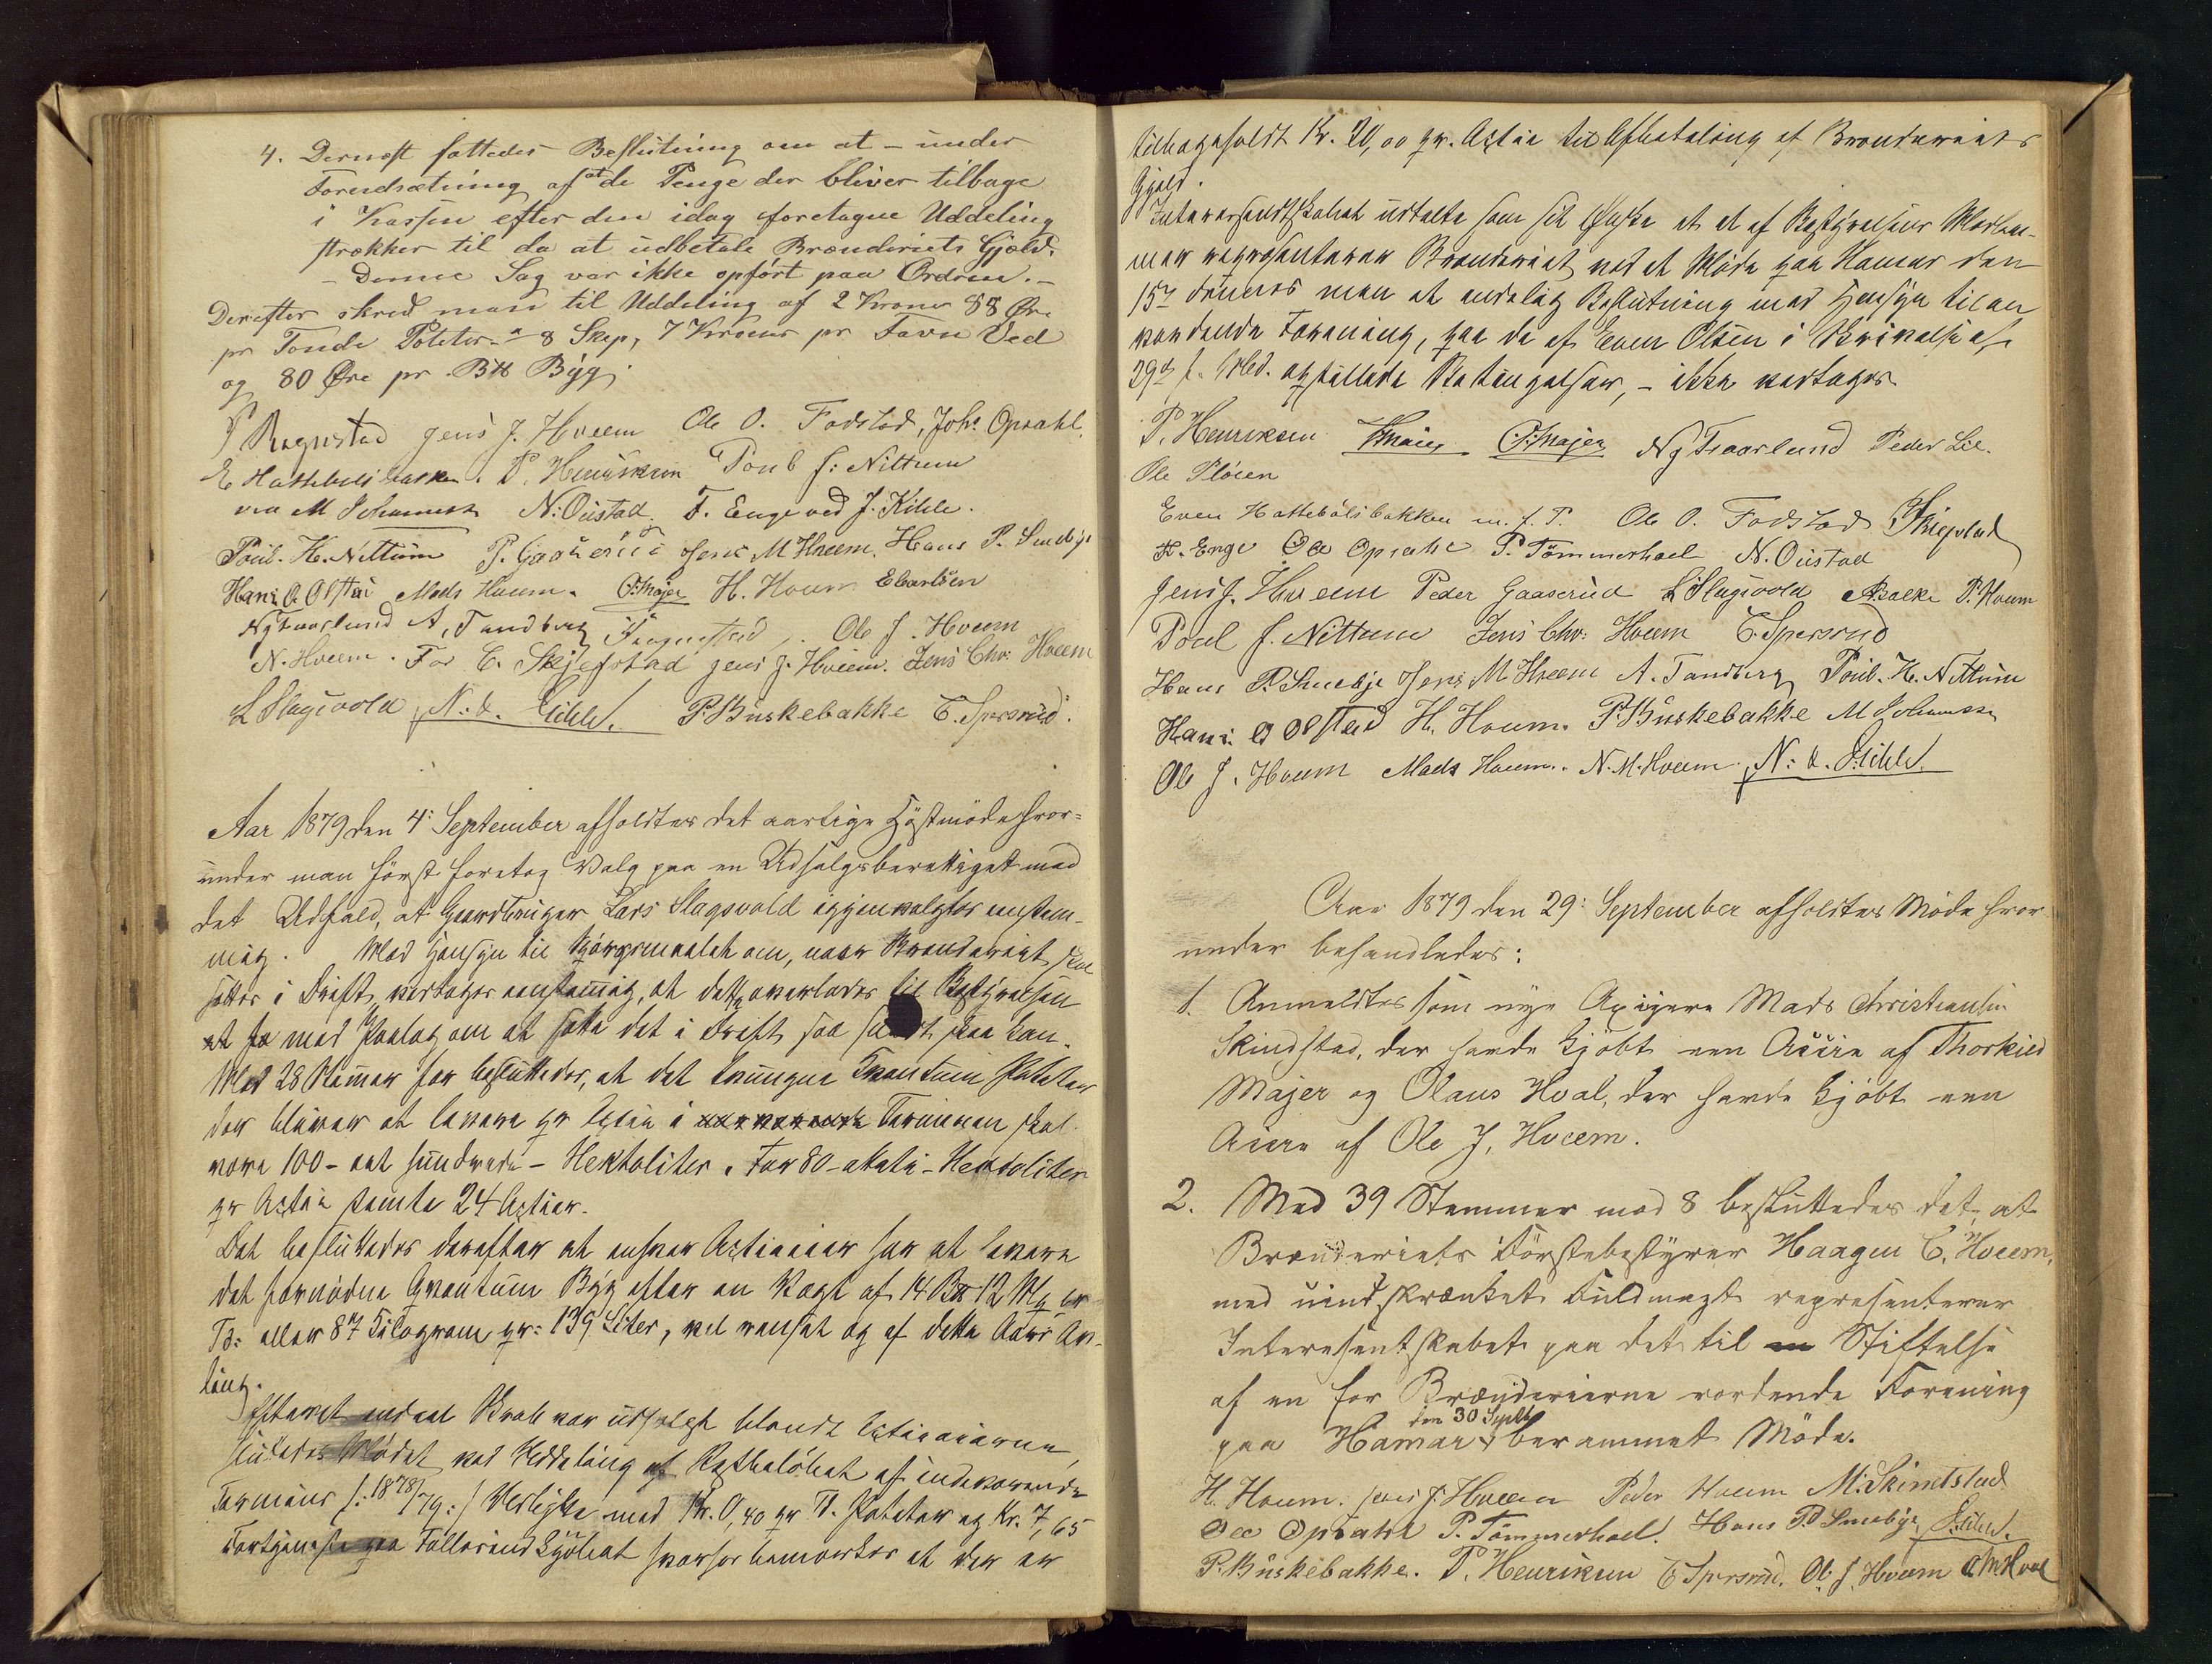 4. Dernæst fattedes Beslutning om at – under
Forudsætning af at de Penge der bliver tilbage
i Kassen efter den idag foretagne Uddeling
strækker til da at udbetale Brænderiets Gjæld.
– Denne Sag var ikke opført paa Ordren. –
Derefter skred man til Uddeling af 2 Kroner 88 Øre
pr Tønde Poteter – a 8 Skp, 7 Kroner pr Favn Ved
og 80 Øre pr. B℔ Byg.
P Rognstad Jens J. Hveem Ole O. Fodstad, Johs Opsahl
E Hattebølsbakken. P. Henriksen Poul J: Nittum
M Johannessen N: Oustad. F. Enge ved J. Kihle.
Poul. H. Nittum P. Gaaserud Jens M Hveem. Hans P. Smeby
Hans O Olstad Mads Houm. O:Majer H. Houm Ebartsen
Ng Traarlund A, Tandberg Ole J. Hveem
N. Hveem. For C. Skjefstad Jens J. Hveem. Jens Chr: Hveem
L Slagsvold N: K. Kihle. P. Buskebakke C. Spersrud.
Aar 1879 den 4: September afholdtes det aarlige Høstmøde hvor-
under man først foretog Valg paa en Udsalgsberettiget med
det Udfald, at Gaardbruger Lars Slagsvold igjenvalgtes enstem-
mig. Med Hensyn til Spørgsmaalet om, naar Brænderiet skal
sættes i Drift, vedtoges enstemmig, at dette overlades til Bestyrelsen
med Paalæg om at sætte det i Drift saa snart ske kan.
Med 28 Stemmer for besluttedes, at det tvungne Kvantum Poteter
der bliver at levere pr Actie i Terminen skal
være 100 – eet hundrede – Hektoliter. For 80 – otteti – Hectoliter
pr Actie stemte 24 Actier.
Det besluttedes derefter at enhver Actieeier har at levere
det fornødne Qvantum Byg efter en Vægt af 14 B℔ 12 Mk pr
Td: eller 87 Kilogram pr: 139 Liter, vel renset og af dette Aars Av-
ling.
Efterat endeel Skrab var udsolgt blandt Actieeierne
sluttedes Mødet ved Uddeling af Restbeløbet af indeværende
Termins /: 1878/79 :/ med Kr. 0,40 pr Td. Poteter og Kr. 7,65
Fortjeneste paa hvorfor bemærkes at der er
tilbageholdt Kr. 20,00 pr. Actie til Afbetaling af Brænderiets
Gjæld.
Interessentskabet udtalte som sit Ønske at et af Bestyrelsens Medlem-
mer repræsenterer Brænderiet ved et Møde paa Hamar den
15de dennes men at endelig Beslutning med Hensyn til en
vordende Forening, paa de af Even Olsen i Skrivelse af
29de f. Md. opstillede Betingelser, – ikke vedtoges.
P. Henriksen O:Majer Ng Traarlund Peder Lie.
Ole Pløien
Even Hattebølsbakken m. f. P. Ole O. Fodstad
F. Enge Ole Opsahl P. Tømmerhoel N. Oustad
Jens J. Hveem Peder Gaaserud L Slagsvold P. Houm
Poul J. Nittum Jens Chr: Hveem C. Spersrud
Hans P. Smebye Jens M Hveem A. Tandberg Poul. H. Nittum
Hans O Olstad H. Houm. P. Buskebakke M Johannessen
Ole J. Hveem Mads Houm. N. M. Hveem N: K. Kihle.
Aar 1879 den 29: September afholdtes Møde hvor-
under behandledes:
1. Anmeldtes som nye Actieeiere Mads Christiansen
Skindstad, der havde kjøbt een Actie af Thorkild
Majer og Olaus Hval, der havde kjøbt een
Actie af Ole J, Hveem.
2. Med 39 Stemmer mod 8 besluttedes det, at
Brænderiets Førstebestyrer Haagen C. Hveem,
med uindskrænket Fuldmagt representerer
Interesentskabet paa det til Stiftelse
af en for Brænderierne vordende Forening
den 30 Septbr
paa Hamar berammet Møde.
H. Houm. Jens J. Hveem Peder Houm M. Skindstad
Ole Opsahl P. Tømmerhoel. Hans P. Smebye Kihle.
P. Buskebakke. P. Henriksen C Spersrud. Ole J. Hveem O. M Hval